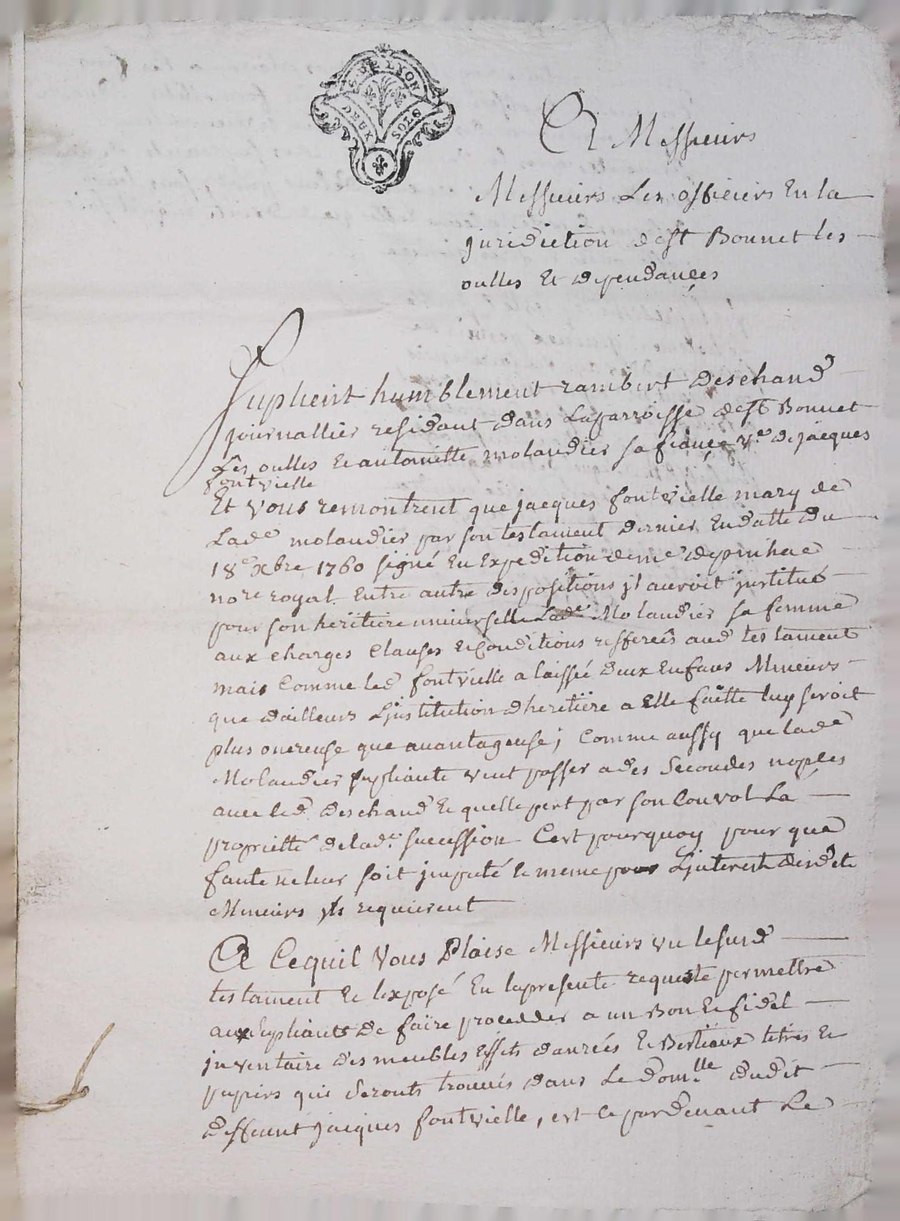 G. DE LYON
DEUX SOLS
A Messieurs
Messieurs Les officiers En la
juridiction de st Bonnet les
oulles Et dependances
Suplient humblement rambert Deschand
journallier residant dans La parroisse de st Bonnet
Les oulles Et antoinette molandier sa fiancée Ve. de jacques
fontvielle
Et vous remontrent que jacques fontvielle mary de
Lade. molandier par son testament dernier En datte du
18e. xbre 1760 signé En Expedition de me.
nore royal Entre autre dispositions jl auroit jnstitué
pour son heritiere universelle Lade. Molandier sa femme
aux charges Clauses Et Conditions refferées aud testament
mais Comme led fontvielle a laissé deux Enfans Mineurs
que dailleurs Ljnstitution dheritière a Elle faitte luy seroit
plus onereuse que avantageuse ; Comme aussy que lade
Molandier supliante veut passer a des Secondes noples
avec led. Deschand Et quelle pert par son Convol La
proprietté de lad. succession Cest pourquoy pour que
faute ne leur soit jmputé Et meme pour Ljnterest desdts
Mineurs jls requierent
A Ce quil Vous Plaise Messieurs vu le susd
testament Et lexposé En la presente requeste permettre
aux supliants De faire proceder a un Bon Et fidel
jnventaire des meubles Effets danrées Et Bestiaux titres Et
papiers qui Seronts trouvés dans Le dom.lle dudit
deffunt jacques fontvielle, est ce pardevant Le